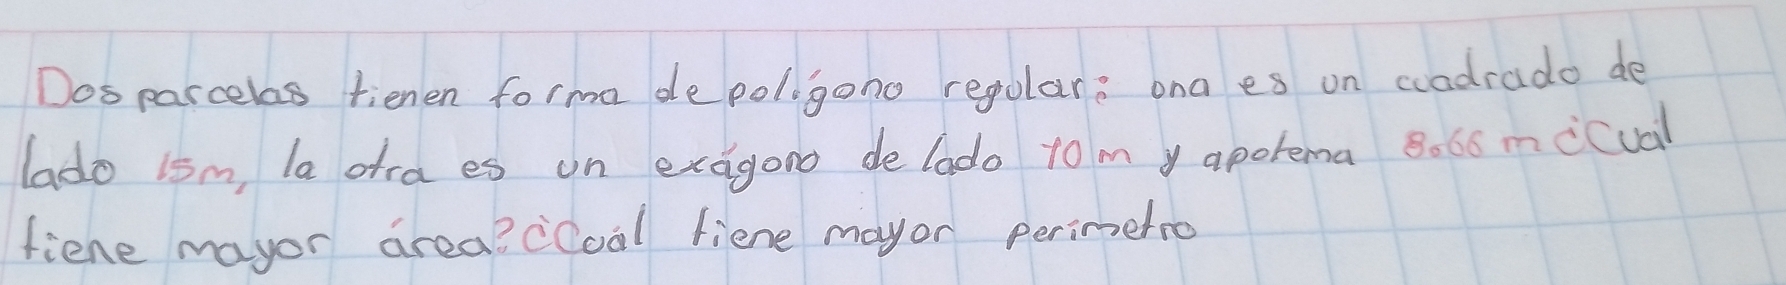 Dos parcelas tienen forma de polígono regular: una es un cuadrado de
lado 15m, la otra es un exágono de lado 10m y apotema 8.66 m ¿Cuál
tiene mayor área? ¿Cuál tiene mayor perimetro